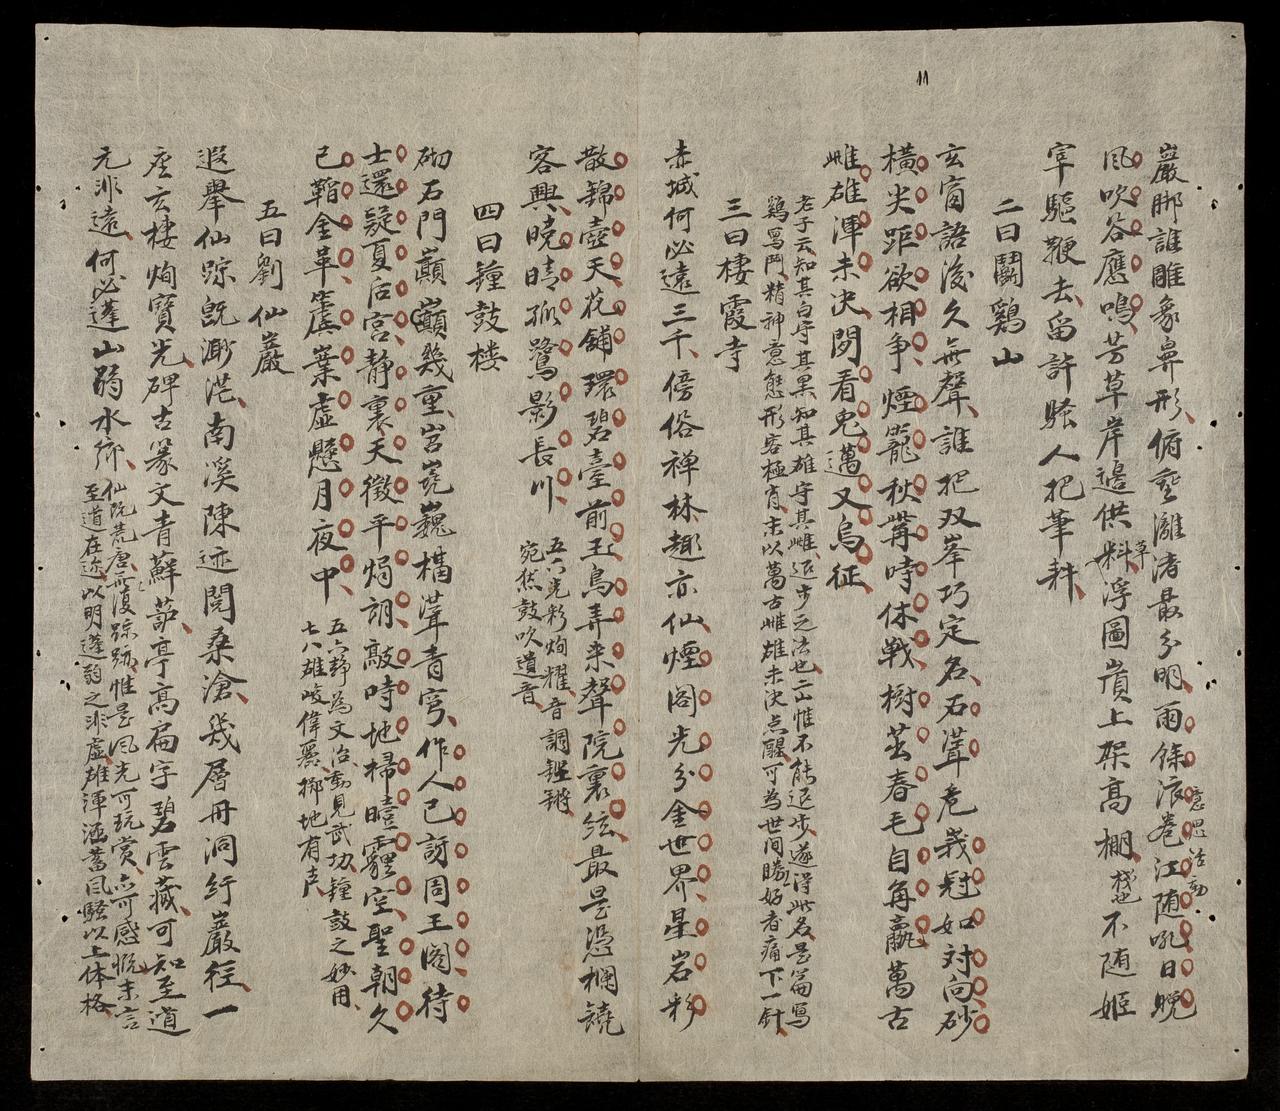 巖脚誰雕象鼻形俯𡊮灘渚最分明雨餘浪卷江隨吼日晚
意思活動
風吹谷應鳴芳草岸邊供料浮圖嵿上架高棚棧也不随姬
草
宰驅鞭去留許騷人把筆耕
二曰鬪鷄山
玄窗語後久無聲誰把双峯巧定名石聳危峩冠如対向砂
橫尖距欲相争煙籠秋幕時休戦樹茁春毛自角贏萬古
雌雄渾未决閱看兎邁又烏征
老子云知其白守其黑知其雄守其雌退步之法也二山惟不能退步遂得此名是篇寫
鷄罵鬥精神意態形容極肖末以萬古雌雄未决点醒可為世间勝好者痛下一針
三曰棲霞寺
赤城何必遠三千傍俗禅林趣亦仙煙阁光分金世界星岩彩
散錦壺天花鋪環碧臺前玉鳥弄来聲院裏絃最是憑欄饒
客興曉晴孤鷺影長川
五六光彩炯耀音調鏗鏘
宛然鼓吹遺音
四曰鐘鼓楼
砌石門巔巔幾重岧嶤巍構聳青穹作人已訝周王阁待
士還疑夏后宫静裏天徵平焗朗敲時地掃曀霾空聖朝久
已鞱金革簴業虚懸月夜中
五六静為文治動見武功鐘鼓之妙用
七八雄峻偉麗擲地有声
五曰劉仙巖
遐舉仙踪既渺茫南溪陳迹閱桑滄幾層丹洞紆巖徑一
座玄棲炯寶光碑古篆文青蘚蓊亭高扁字碧雲藏可知至道
元非遠何必蓬山弱水鄉
仙阮荒唐無復踪跡惟是風光可玩賞亦可感慨末言
至道在迩以明蓬弱之非虚雄渾涵蓄風騷以上体格